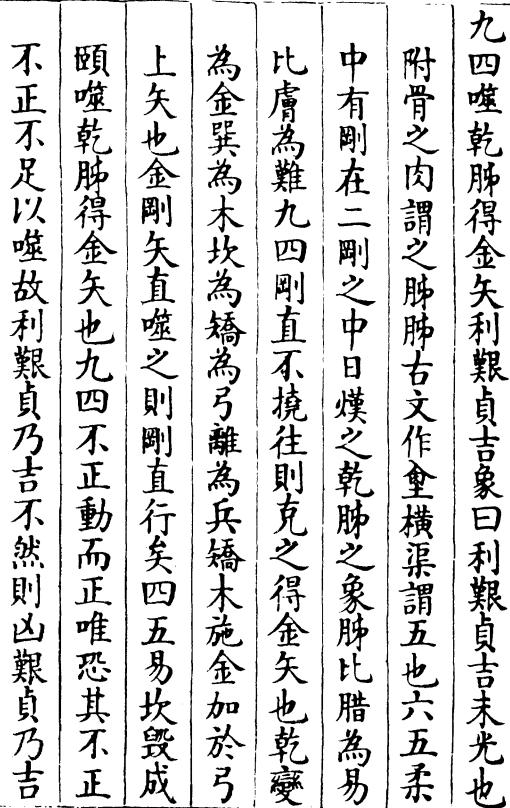 九四噬乾胏得金矢利艱貞吉象曰利艱貞吉未光也
附骨之肉謂之胏胏古文作𡉉橫渠謂五也六五柔
中有剛在二剛之中日熯之乾胏之象胏比腊為易
比膚為難九四剛直不撓往則克之得金矢也乾變
為金巽為木坎為矯為弓離為兵矯木施金加於弓
上矢也金剛矢直噬之則剛直行矣四五易坎毀成
頤噬乾胏得金矢也九四不正動而正唯恐其不正
不正不足以噬故利艱貞乃吉不然則凶艱貞乃吉